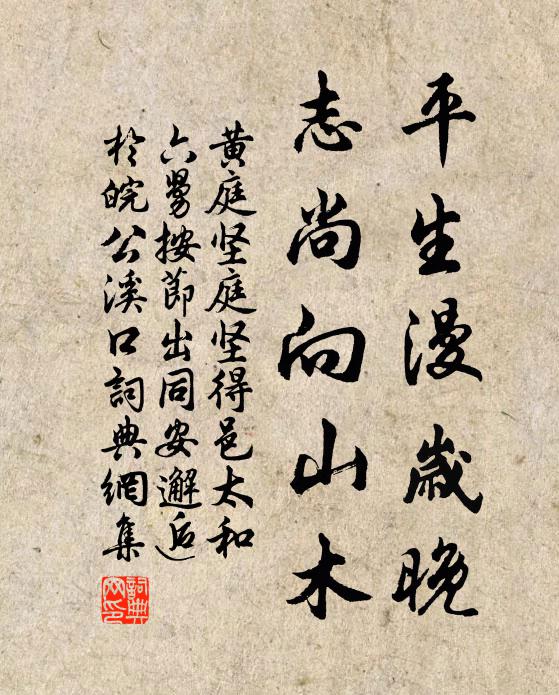 平生漫歲晚
志尚向山木
黄庭坚庭坚得邑太和
六舅按節出同安邂逅
於皖公溪口詞典網集
詞典
网印